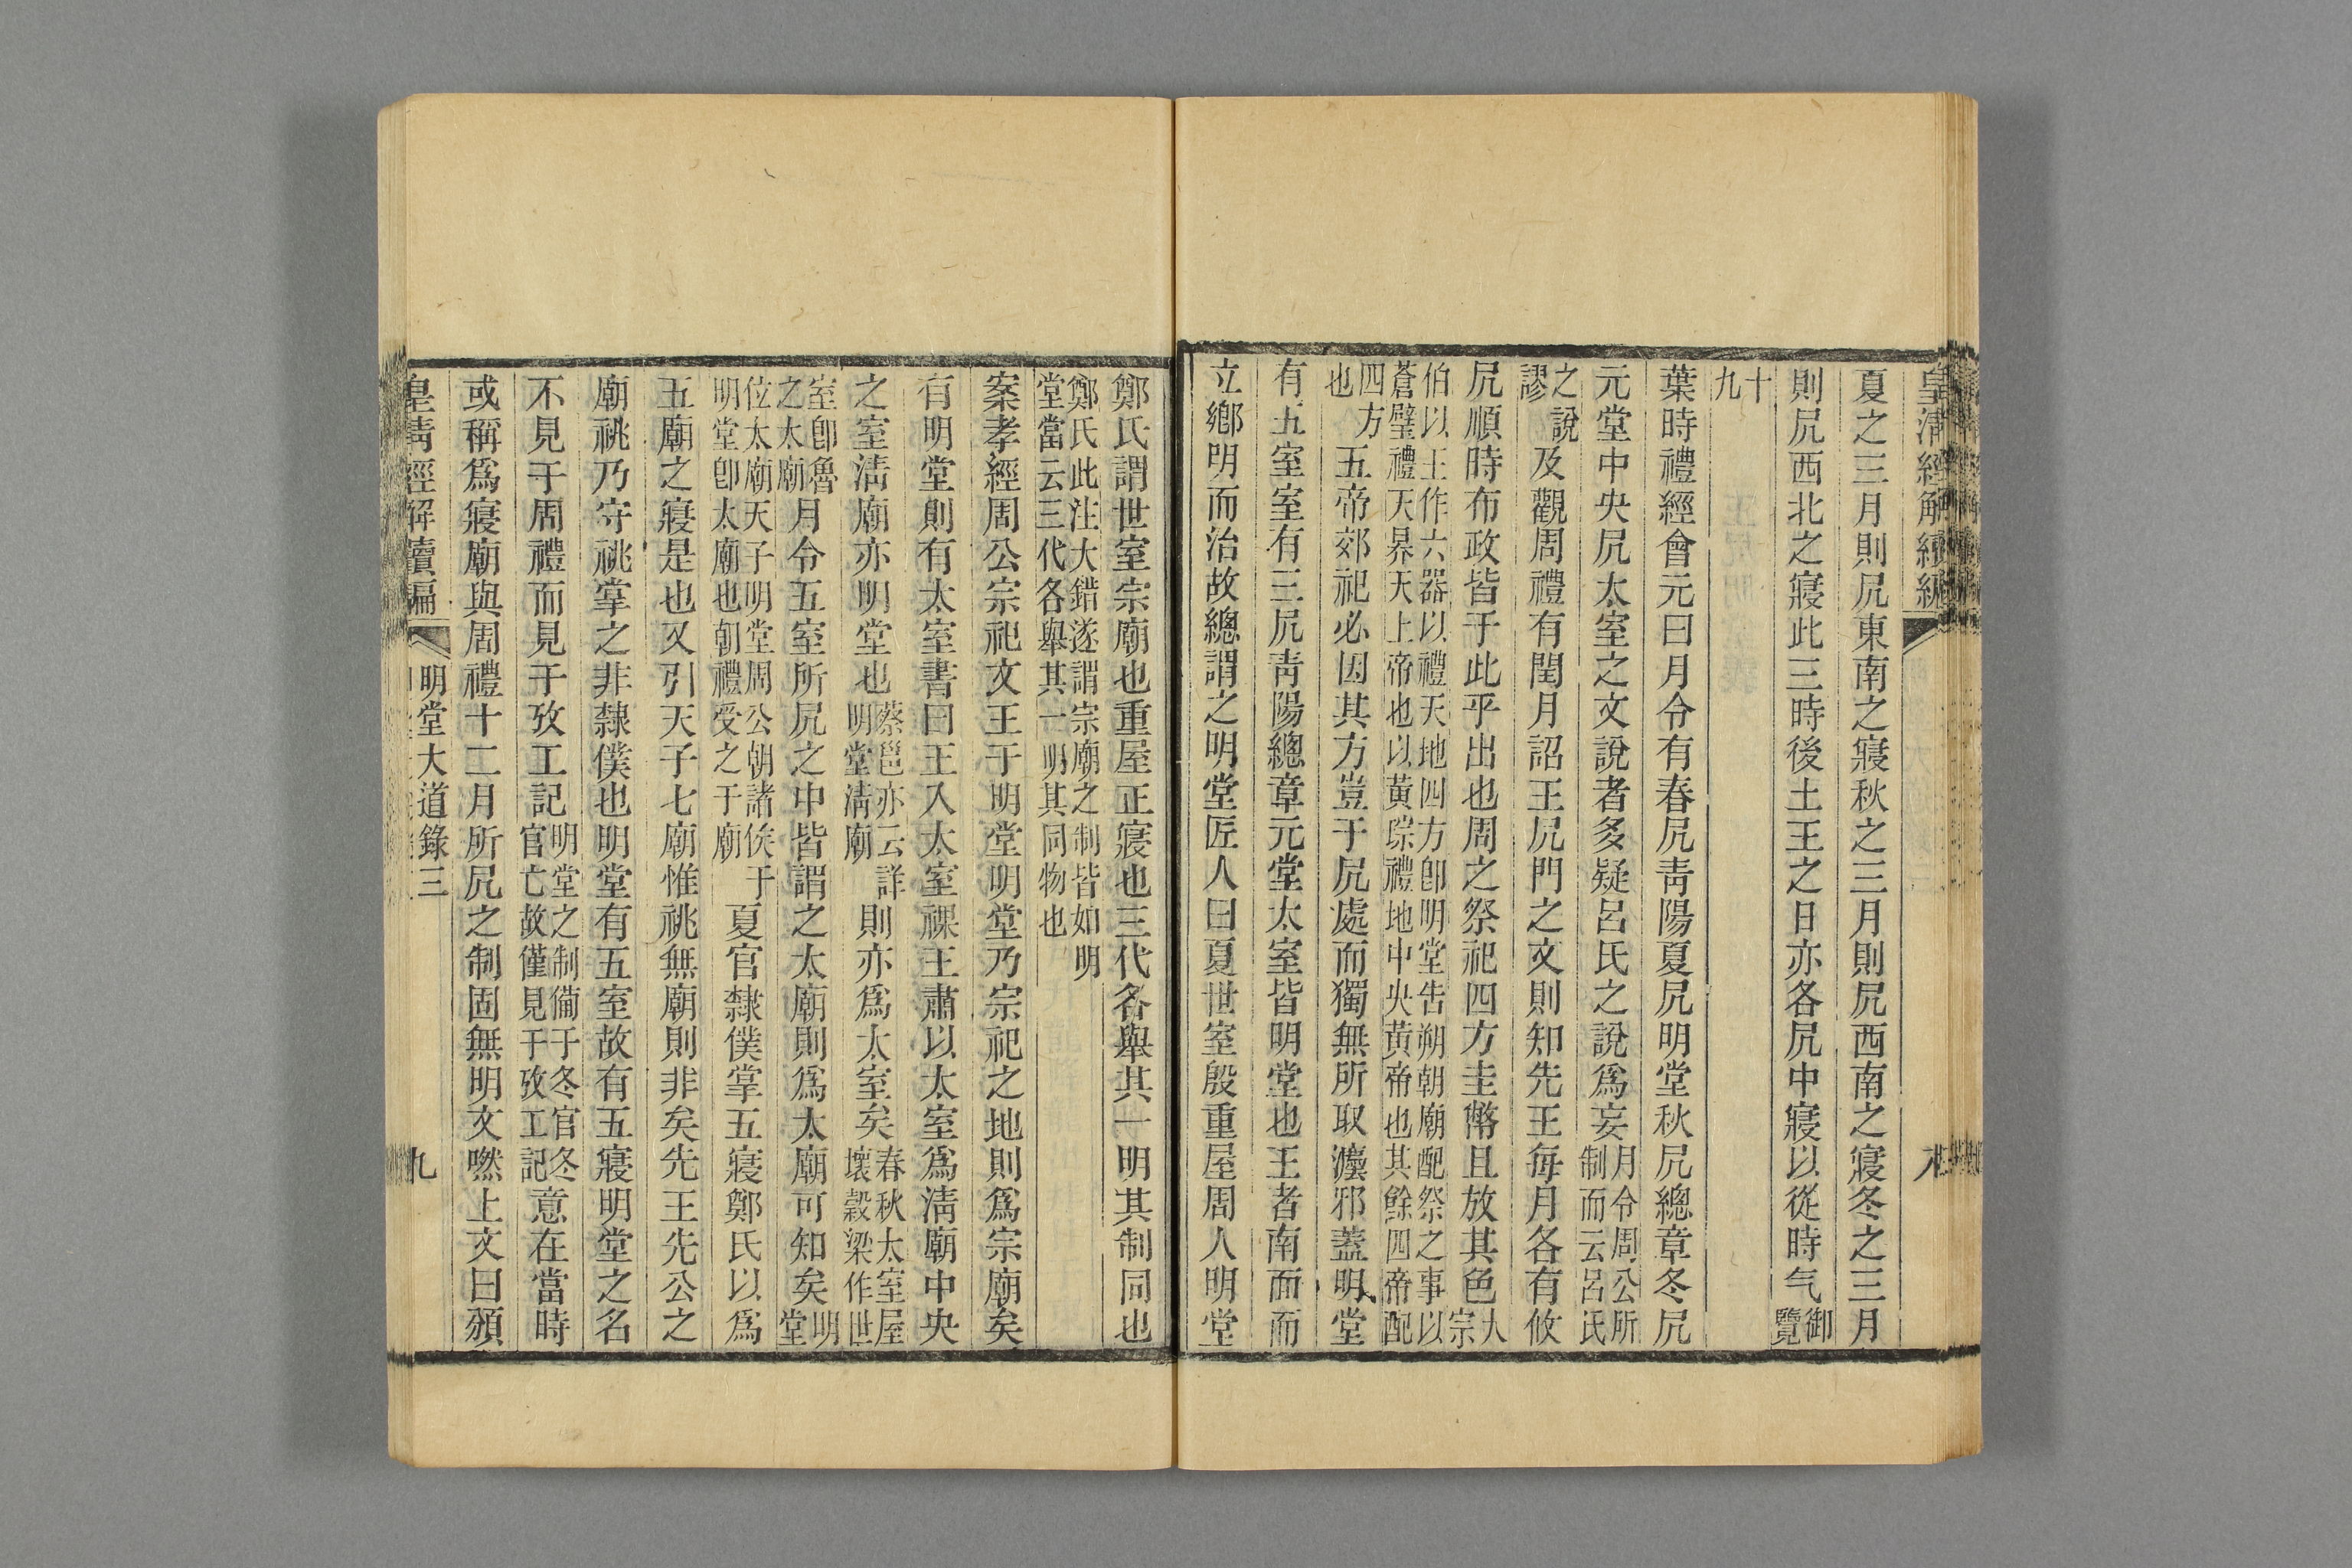 皇清經解續編
夏之三月則凥東南之寢秋之三月則凥西南之寢冬之三月
則凥西北之寢此三時後土王之日亦各凥中寢以從時气御覽
十九
葉時禮經會元曰月令有春凥靑陽夏凥明堂秋凥總章冬凥
元堂中央凥太室之文說者多疑呂氏之說爲妄月令周公所制而云呂氏
之說謬及觀周禮有閏月詔王凥門之文則知先王每月各有攸
凥順時布政皆于此乎出也周之祭祀四方圭幣且放其色大宗
伯以玉作六器以禮天地四方卽明堂告朔朝廟配祭之事以蒼璧禮天昦天上帝也以黃琮禮地中央黃帝也其餘四帝配
四方也五帝郊祀必因其方豈于凥處而獨無所取灋邪蓋明堂
有五室室有三凥靑陽總章元堂太室皆明堂也王者南面而
立鄉明而治故總謂之明堂匠人曰夏世室殷重屋周人明堂
鄭氏謂世室宗廟也重屋正寢也三代各舉其一明其制同也
鄭氏此注大錯遂謂宗廟之制皆如明堂當云三代各舉其一明其同物也
案孝經周公宗祀文王于明堂明堂乃宗祀之地則爲宗廟矣
有明堂則有太室書曰王入太室祼王肅以太室爲淸廟中央
之室淸廟亦明堂也蔡邕亦云詳明堂淸廟則亦爲太室矣春秋太室屋壞穀梁作世
室卽魯之太廟月令五室所凥之中皆謂之太廟則爲太廟可知矣明堂
位太廟天子明堂周公朝諸侯于明堂卽太廟也朝禮受之于廟夏官隸僕掌五寢鄭氏以爲
五廟之寢是也又引天子七廟惟祧無廟則非矣先王先公之
廟祧乃守祧掌之非隸僕也明堂有五室故有五寢明堂之名
不見于周禮而見于攷工記明堂之制僃于冬官冬官亡故僅見于攷工記意在當時
或稱爲寢廟與周禮十二月所凥之制固無明文嘫上文曰頒
皇清經解續編
明堂大道錄三
九